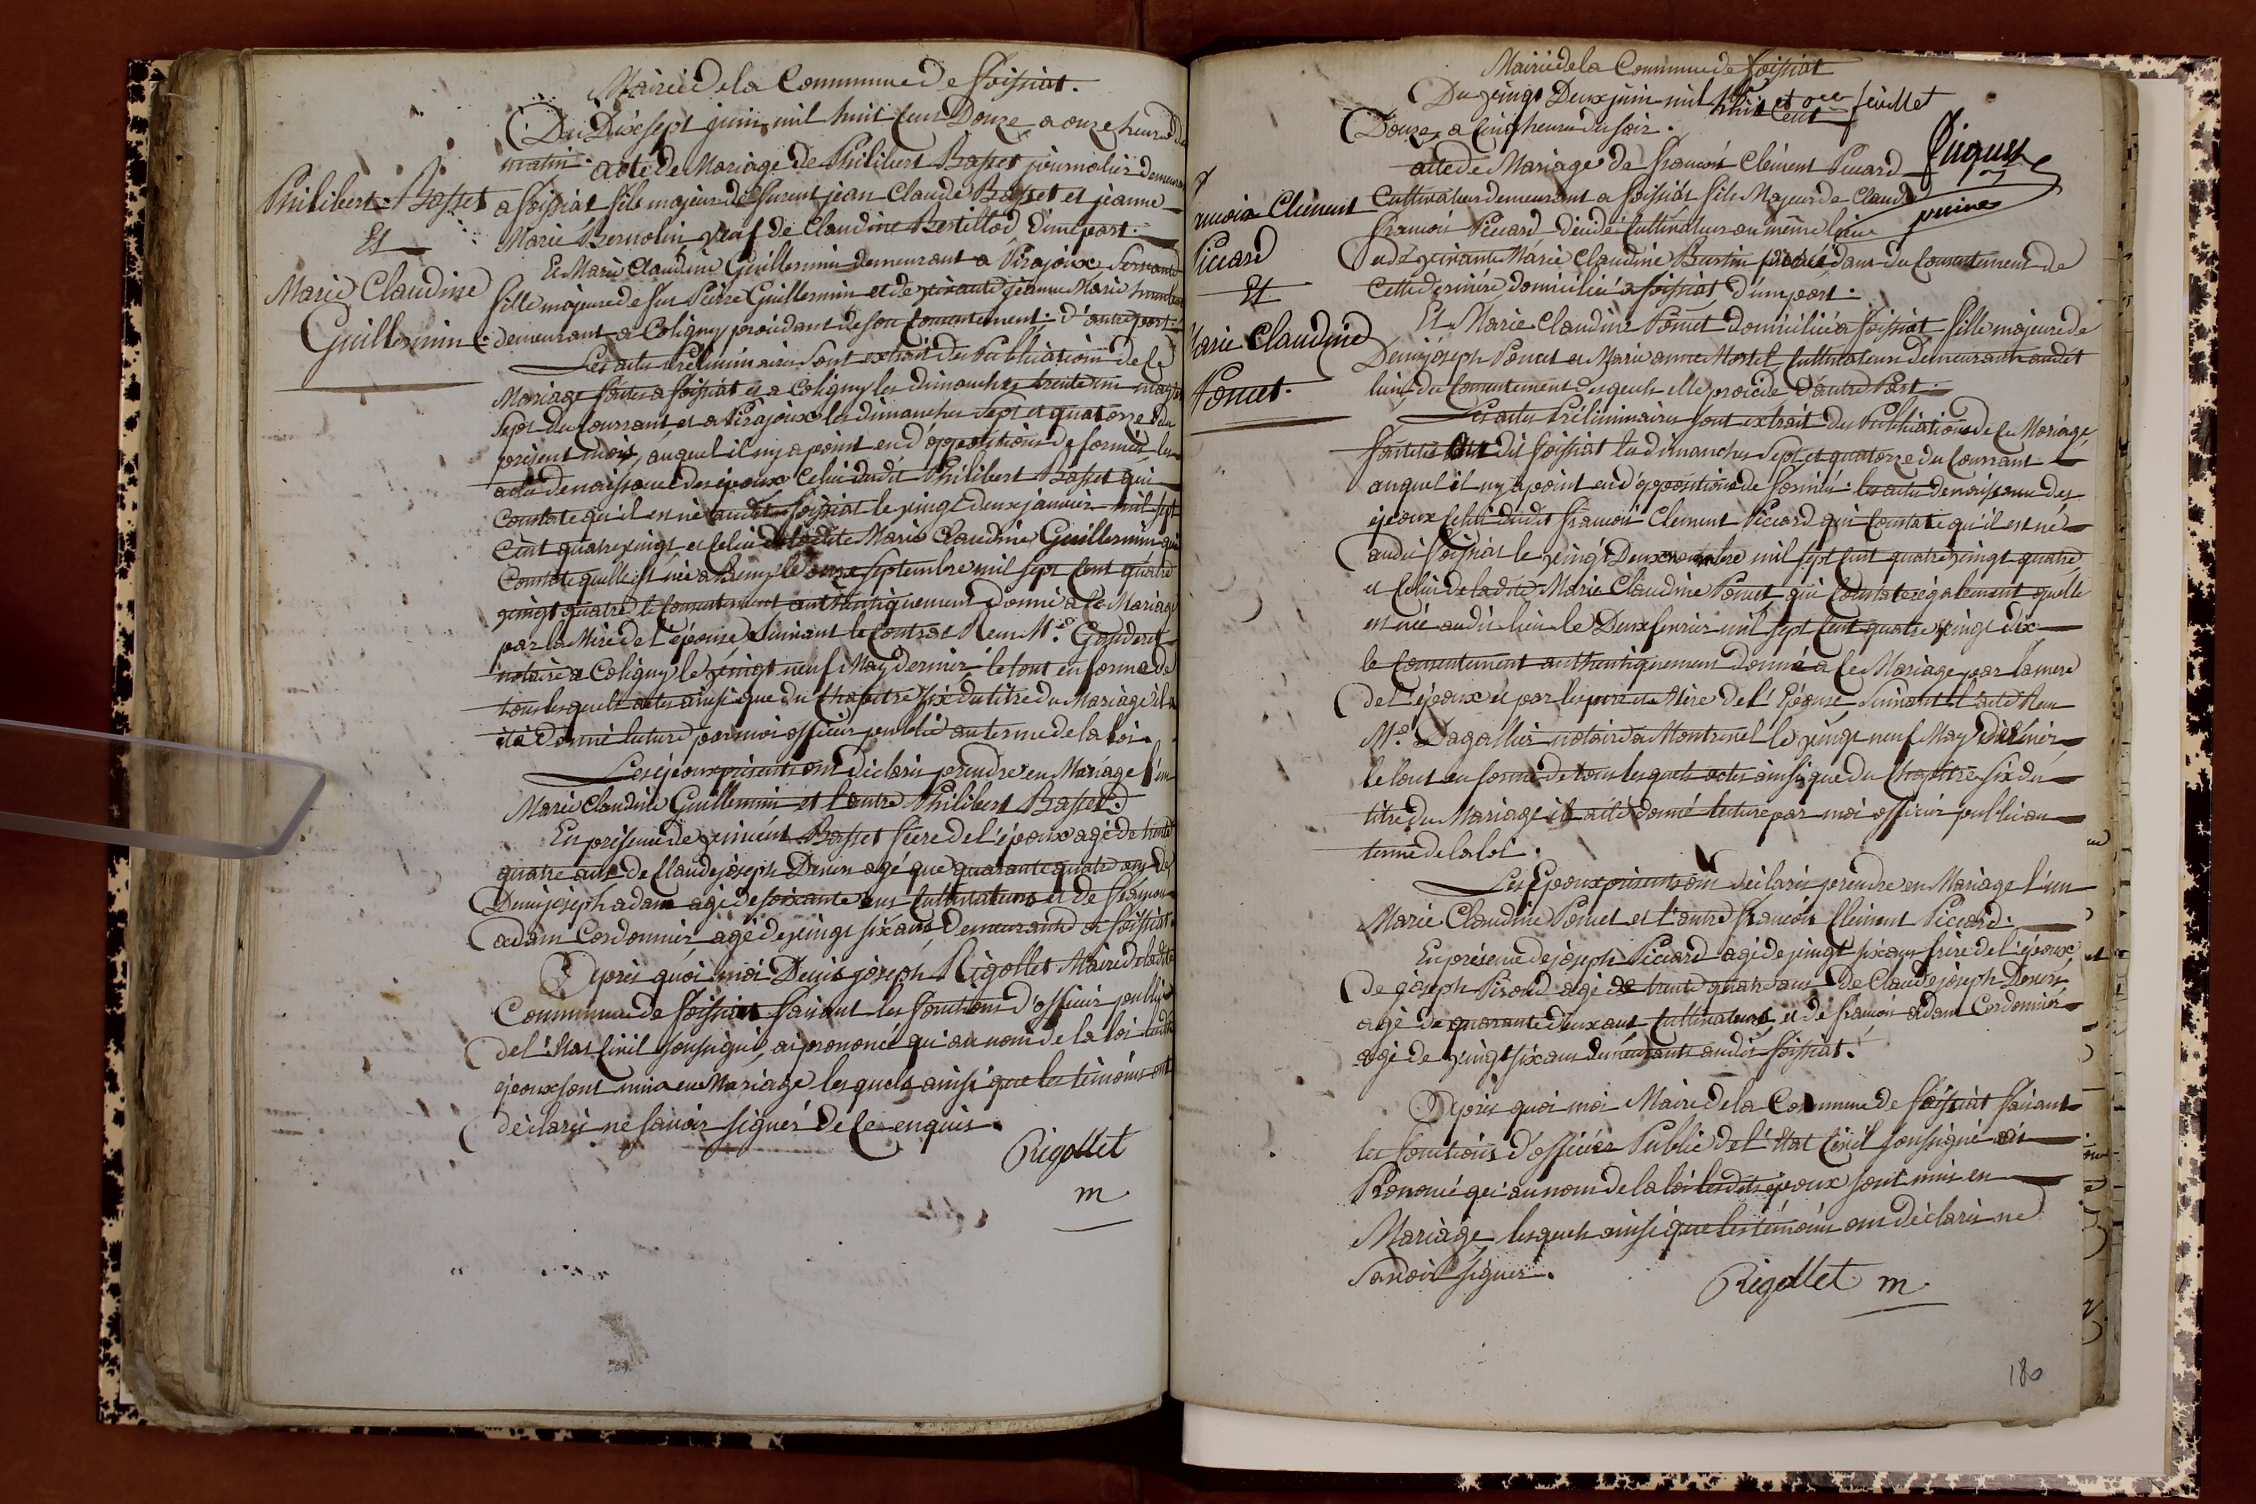 Mairie de la Commune de foissiat.
Du Dix sept juin, mil huit Cent Douze a onze heures du
matin. acte de Mariage de Philibert Basset journalier demeurant
Philibert Basset
Et
Marie Claudine
Guillermin.
a foissiat fils majeur de defunt jean Claude Basset et jeanne
Marie Bernolin veuf de Claudine Bertillod d'une part.
Et Marie Claudine Guillermin demeurant a Pirajoux Servante
fille majeure de feu Pierre Guillermin et de vivante jeanne Marie
demeurant a Coligny procédant de son Consentement. d'autre part.
Les actes Préliminaires sont extrait des Publications de Ce
Mariage faites a foissiat et a Coligny les dimanches trente un may et
sept du Courrant et a Pirajoux les dimanches Sept et quatorze du
présent mois, auquel il ny a point eu d'oppositions de formées les
actes de naissance des époux Celui dudit Philibert Basset qui
Constate qu'il est né audit foissiat le vingt deux janvier mil sept
Cent quatre vingt et Celui de ladite Marie Claudine Guillermin qui
Constate quelle est née a Beny le onze septembre mil sept Cent quatre
vingt quatre le Consentement authentiquement Donné a Ce Mariage
par la Mère de l'épouse Suivant le Contrat Reçu Me.
notaire a Coligny le vingt neuf May dernier, le tout en forme de
tous lesquels actes ainsi que du Chapitre Six du titre du Mariage il a
été Donné lecture par moi officier public au terme de la loi.
Les époux présents ont déclaré prendre en Mariage l'un
Marie Claudine Guillermin et l'autre Philibert Basset.
En présence de vincent Basset frère de l'époux agé de trente
quatre ans de Claude joseph Donin agé que quarante quatre ans de
Denis joseph adam agé de soixante ans Cultivateurs et de françois
adam Cordonnier agé de vingt six ans demeurants a foissiat.
Après quoi moi Denis joseph Rigollet Maire de ladite
Commune de foissiat faisant les fonctions d'officier public
de l'Etat Civil soussigné, ai prononcé qu'au nom de la loi lesdits
époux sont unis en Mariage lesquels ainsi que les témoins ont
déclaré ne savoir signer de Ce enquis.
Rigollet
m
Mairie de la Commune de foissiat
Du vingt Deux juin mil huit Cent
feuillet
Douze, a Cinq heures du soir.
acte de Mariage de françois Clément Piccard
ançois Clément
Piccard
Et
arie Claudine
Poncet.
Cultivateur demeurant a foissiat fils Majeur de Claude
françois Piccard décédé Cultivateur au même lieu
et de vivante Marie Claudine Burtin procédant du Consentement de
Cette dernière, domiciliée a foissiat d'une part.
Et Marie Claudine Poncet domiciliée a foissiat fille majeure de
Denis joseph Poncet et Marie anne Morel Cultivateurs demeurant audit
lieu du Consentement desquels elle procède d'autre Part.
Les actes Préliminaires sont extrait des Publications de Ce Mariage
faites au dit foissiat les dimanches Sept et quatorze du Courrant
auquel il ny a point eu d'oppositions de formées. les actes de naissance des
époux Celui dudit françois Clement Piccard qui Constate qu'il est né
audit foissiat le vingt Deux mil sept Cent quatre vingt quatre
et Celui de ladite Marie Claudine Poncet qui Constate également quelle
est née audit lieu le Deux fevrier mil sept Cent quatre vingt dix
le Consentement authentiquement Donné a Ce Mariage par la mère
de l'époux et par les père et Mère de l'Epouse Suivant l'acte Reçu
Me. Dagallier notaire a Montrevel le vingt neuf May dernier
le tout en forme de tous lesquels actes ainsi que du Chapitre Six du
titre du Mariage il a été donné lecture par moi officier public au
terme de la loi.
Les Epoux présents ont déclaré prendre en Mariage l'un
Marie Claudine Poncet et l'autre françois Clément Piccard.
En présence de joseph Piccard agé de vingt six ans frère de l'époux
De joseph Piroud agé de trente quatre ans De Claude joseph Donin
agé de quarante deux ans Cultivateurs et de françois adam Cordonnier
agé de vingt six ans demeurants audit foissiat.
Après quoi moi Maire de la Commune de foissiat faisant
les fonctions d'officier Public de l'Etat Civil soussigné ai
Prononcé qu'au nom de la loi lesdits époux sont unis en
Mariage, lesquels ainsi que les témoins ont déclaré ne
Savoir signer.
Rigollet m
180